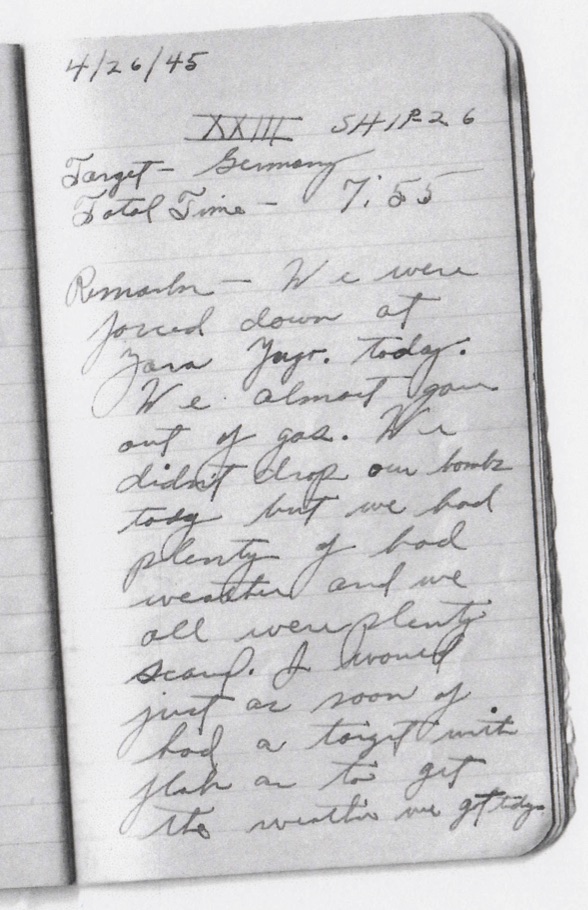 4/26/45
XXIII SHIP-26
Target - Germany
Total Time - 7:55
Remarks - We were
forced down at
Zara Yugo. today.
We almost
out of gas. We
didn't drop our bombs
today but we had
plenty of bad
weather and we
all were plenty
scard. I would
just as soon of
had a target with
flak as to get
the weather we got tody.